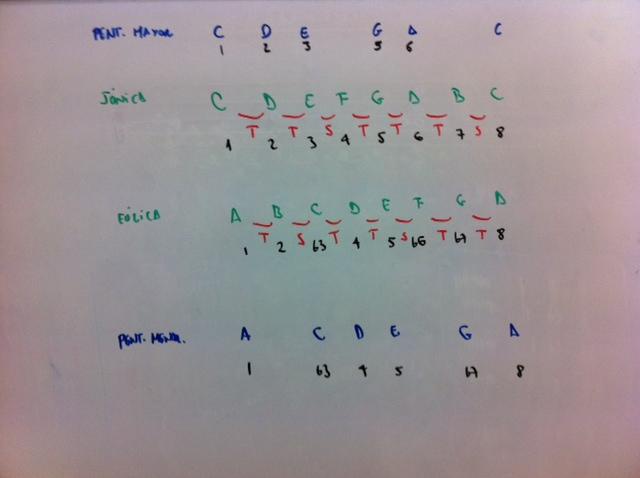 PENT. MAYOR C D E G A C
1 2 3 5 6
JÓNICA C D E F G A B C
T T S T T T S
1 2 3 4 5 6 7 8
EÓLICA A B C D E F G A
T S T T S T T
1 2 b3 4 5 b6 b7 8
PENT. MENOR. A C D E G A
1 b3 4 5 b7 8